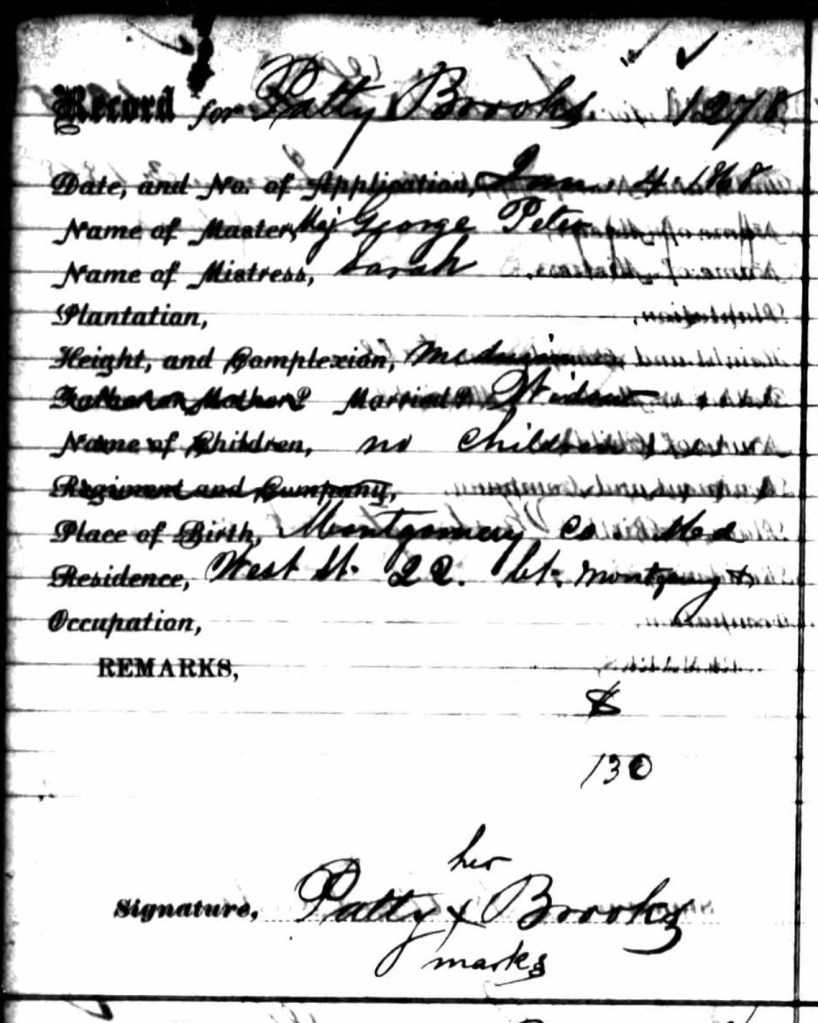 Record for Patty Brooks. 1278
Date, and No. of Application, Jan. 4. 1868
Name of Master, Maj George Peter
Name of Mistress, Sarah
Plantation,
Height, and Complexion, Medium
Father or Mother? Married? Widow
Name of Children, no children
Regiment and Company,
Place of Birth, Montgomery Co. Md
Residence, West St. 22. bt. Montgomery &
Occupation,
REMARKS,
$
130
her
Signature, Patty x Brooks
marks